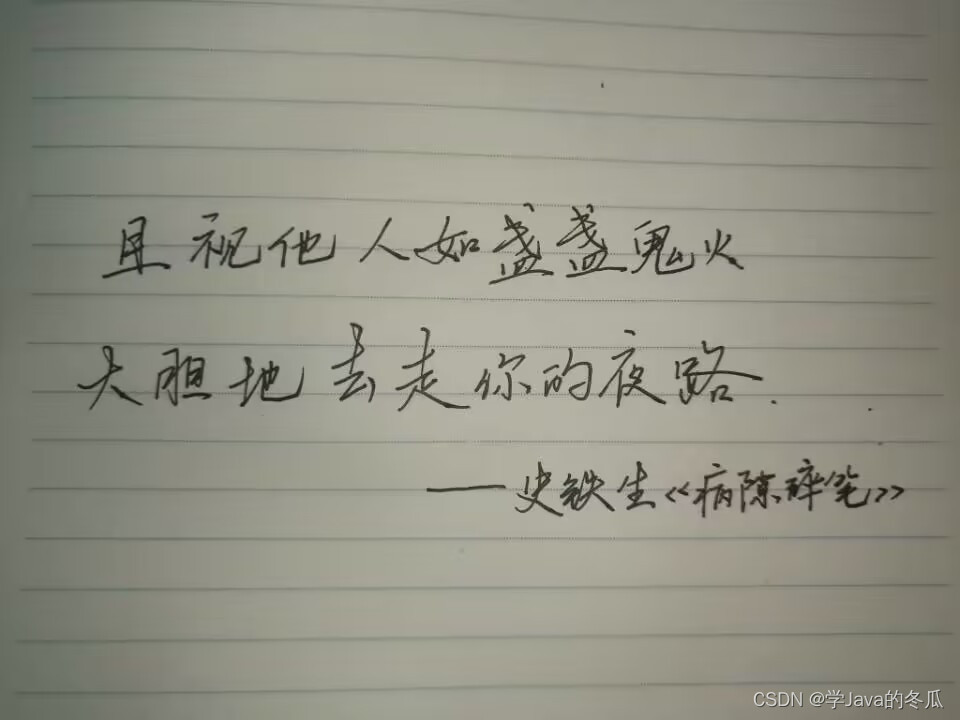 且视他人如盏盏鬼火
大胆地去走你的夜路.
——史铁生《病隙碎笔》
CSDN @学Java的冬瓜